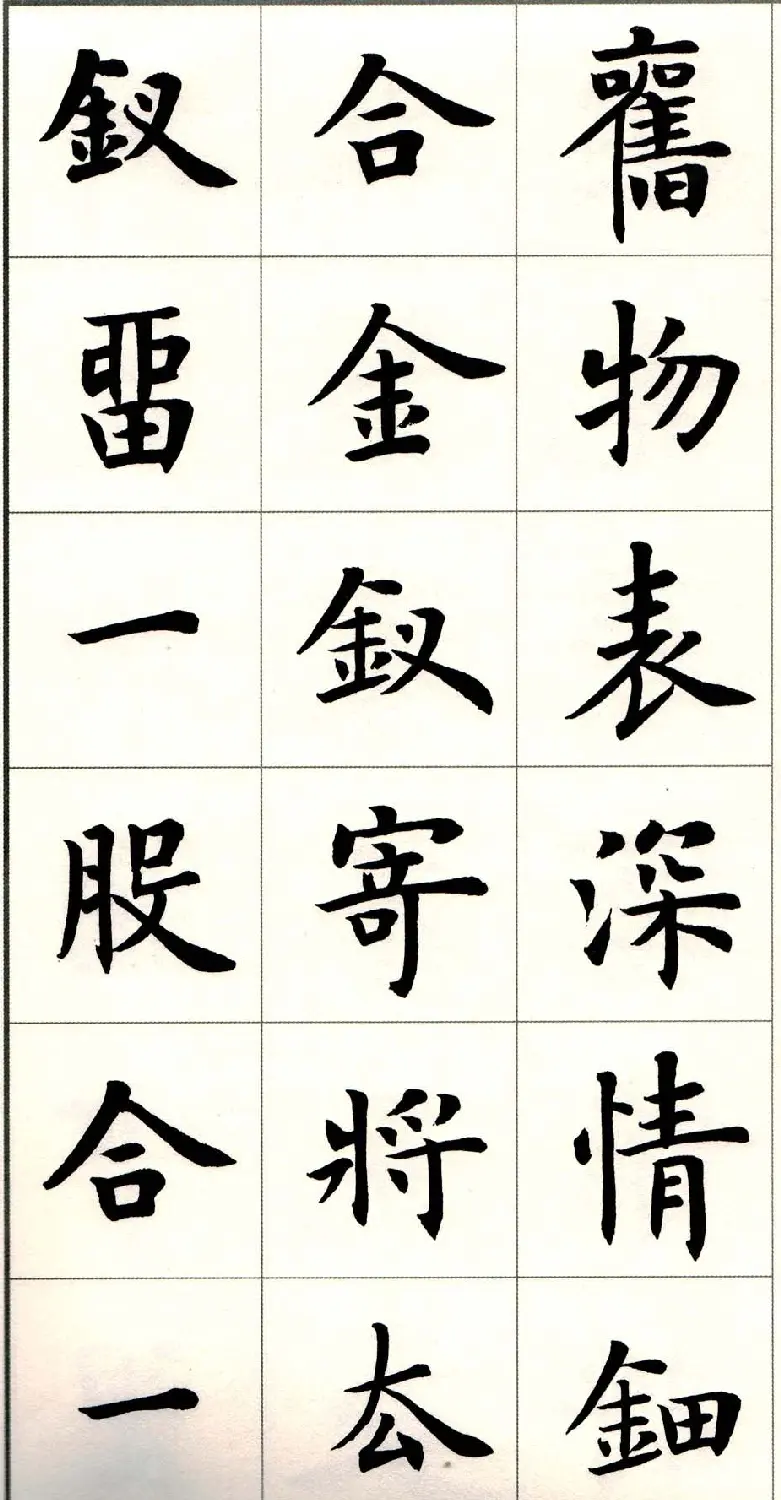 舊物表深情鈿
合金釵寄將去
釵留一股合一